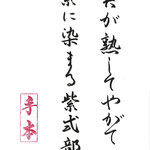 実が熟してやがて
紫に染まる紫式部
手本